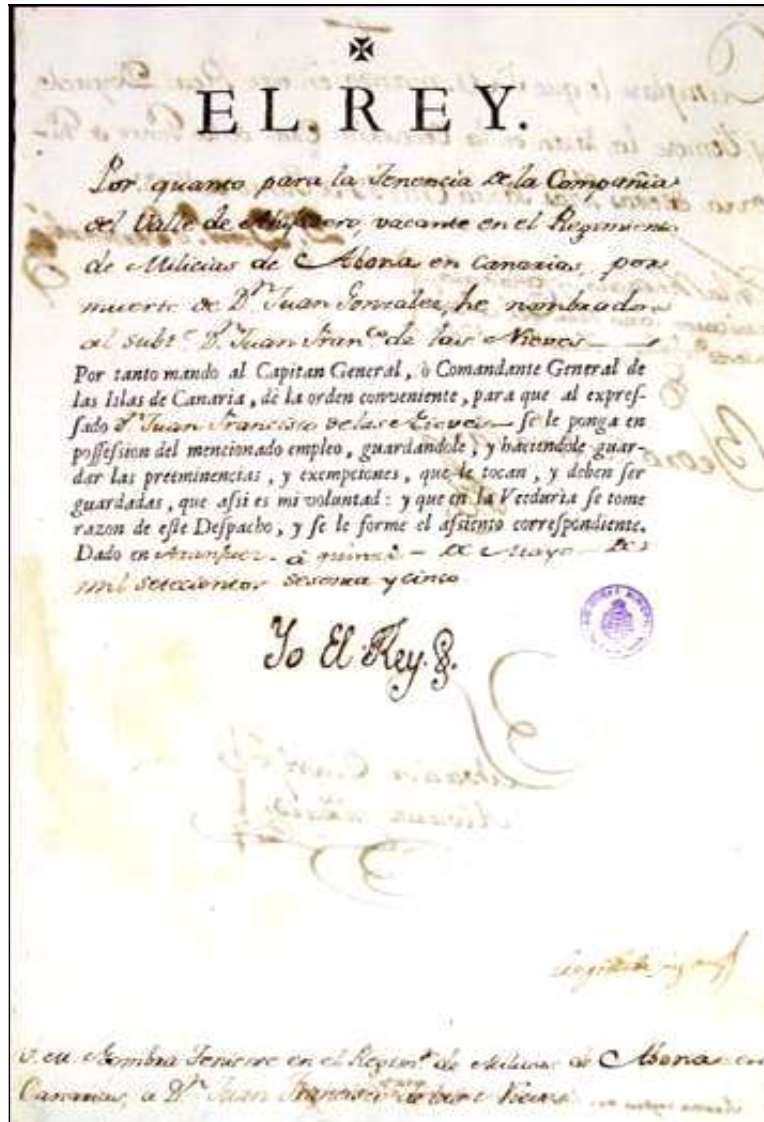 EL REY.
Por quanto para la Tenencia de la Compañia
del Valle de vacante en el Regimiento
de Milicias de Abona en Canarias, por
muerte de Dⁿ Juan Gonzalez, he nombrado
al subt.ᵉ Dⁿ Juan Fran.ᶜᵒ de las Nieves
Por tanto mando al Capitan General, ò Comandante General de
las Islas de Canaria, dè la orden conveniente, para que al expres-
sado Dⁿ Juan Francisco de las Nieves se le ponga en
possession del mencionado empleo, guardandole, y haciendole guar-
dar las preeminencias, y exempciones, que le tocan, y deben ser
guardadas, que assi es mi voluntad: y que en la Veeduria se tome
razon de este Despacho, y se le forme el assiento correspondiente.
Dado en Aranjuez à quince de Mayo de
mil setecientos sesenta y cinco
Yo El Rey.
V. M. Nombra Teniente en el Regim.ᵗᵒ de Milicias de Abona en
Canarias, a Dⁿ Juan Francisco de las Nieves